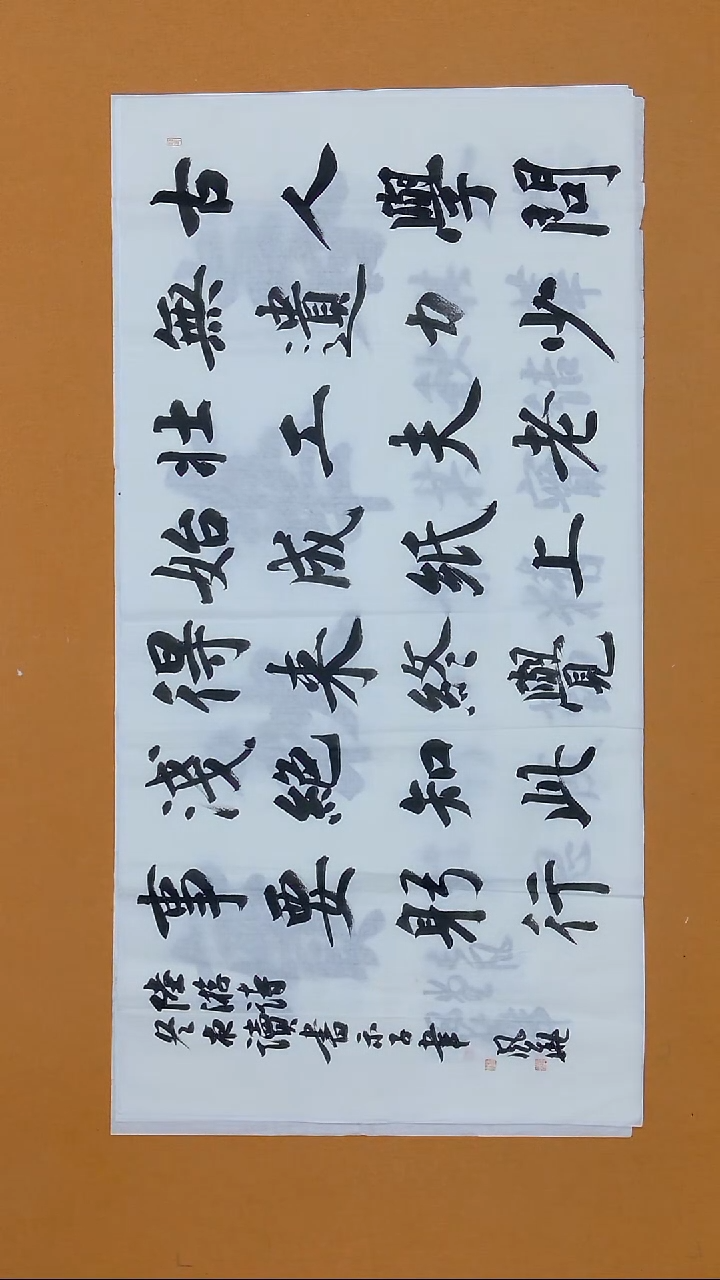 古人學問
無遺力少
壯工夫老
始成紙上
得來終覺
淺絕知此
事要躬行
陸游詩
冬夜讀書示子聿